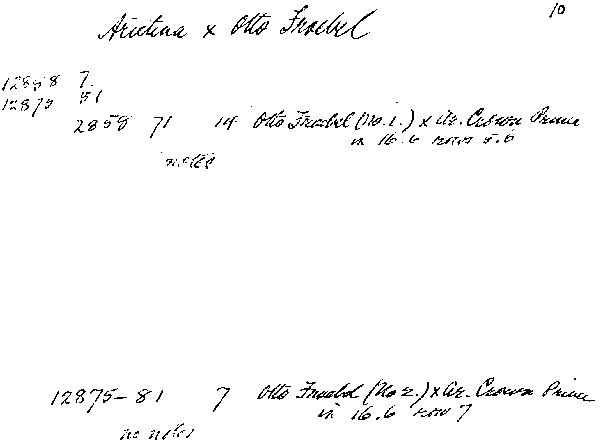 10
Arietina x Otto Froebel
12858 7
12875 81
2858 71 14 Otto Froebel (No. 1.) x Ar. Crown Prince
in 16.6 rows 5.6
notes
12875-81 7 Otto Froebel (No 2.) x Ar. Crown Prince
in 16.6 row 7
no notes